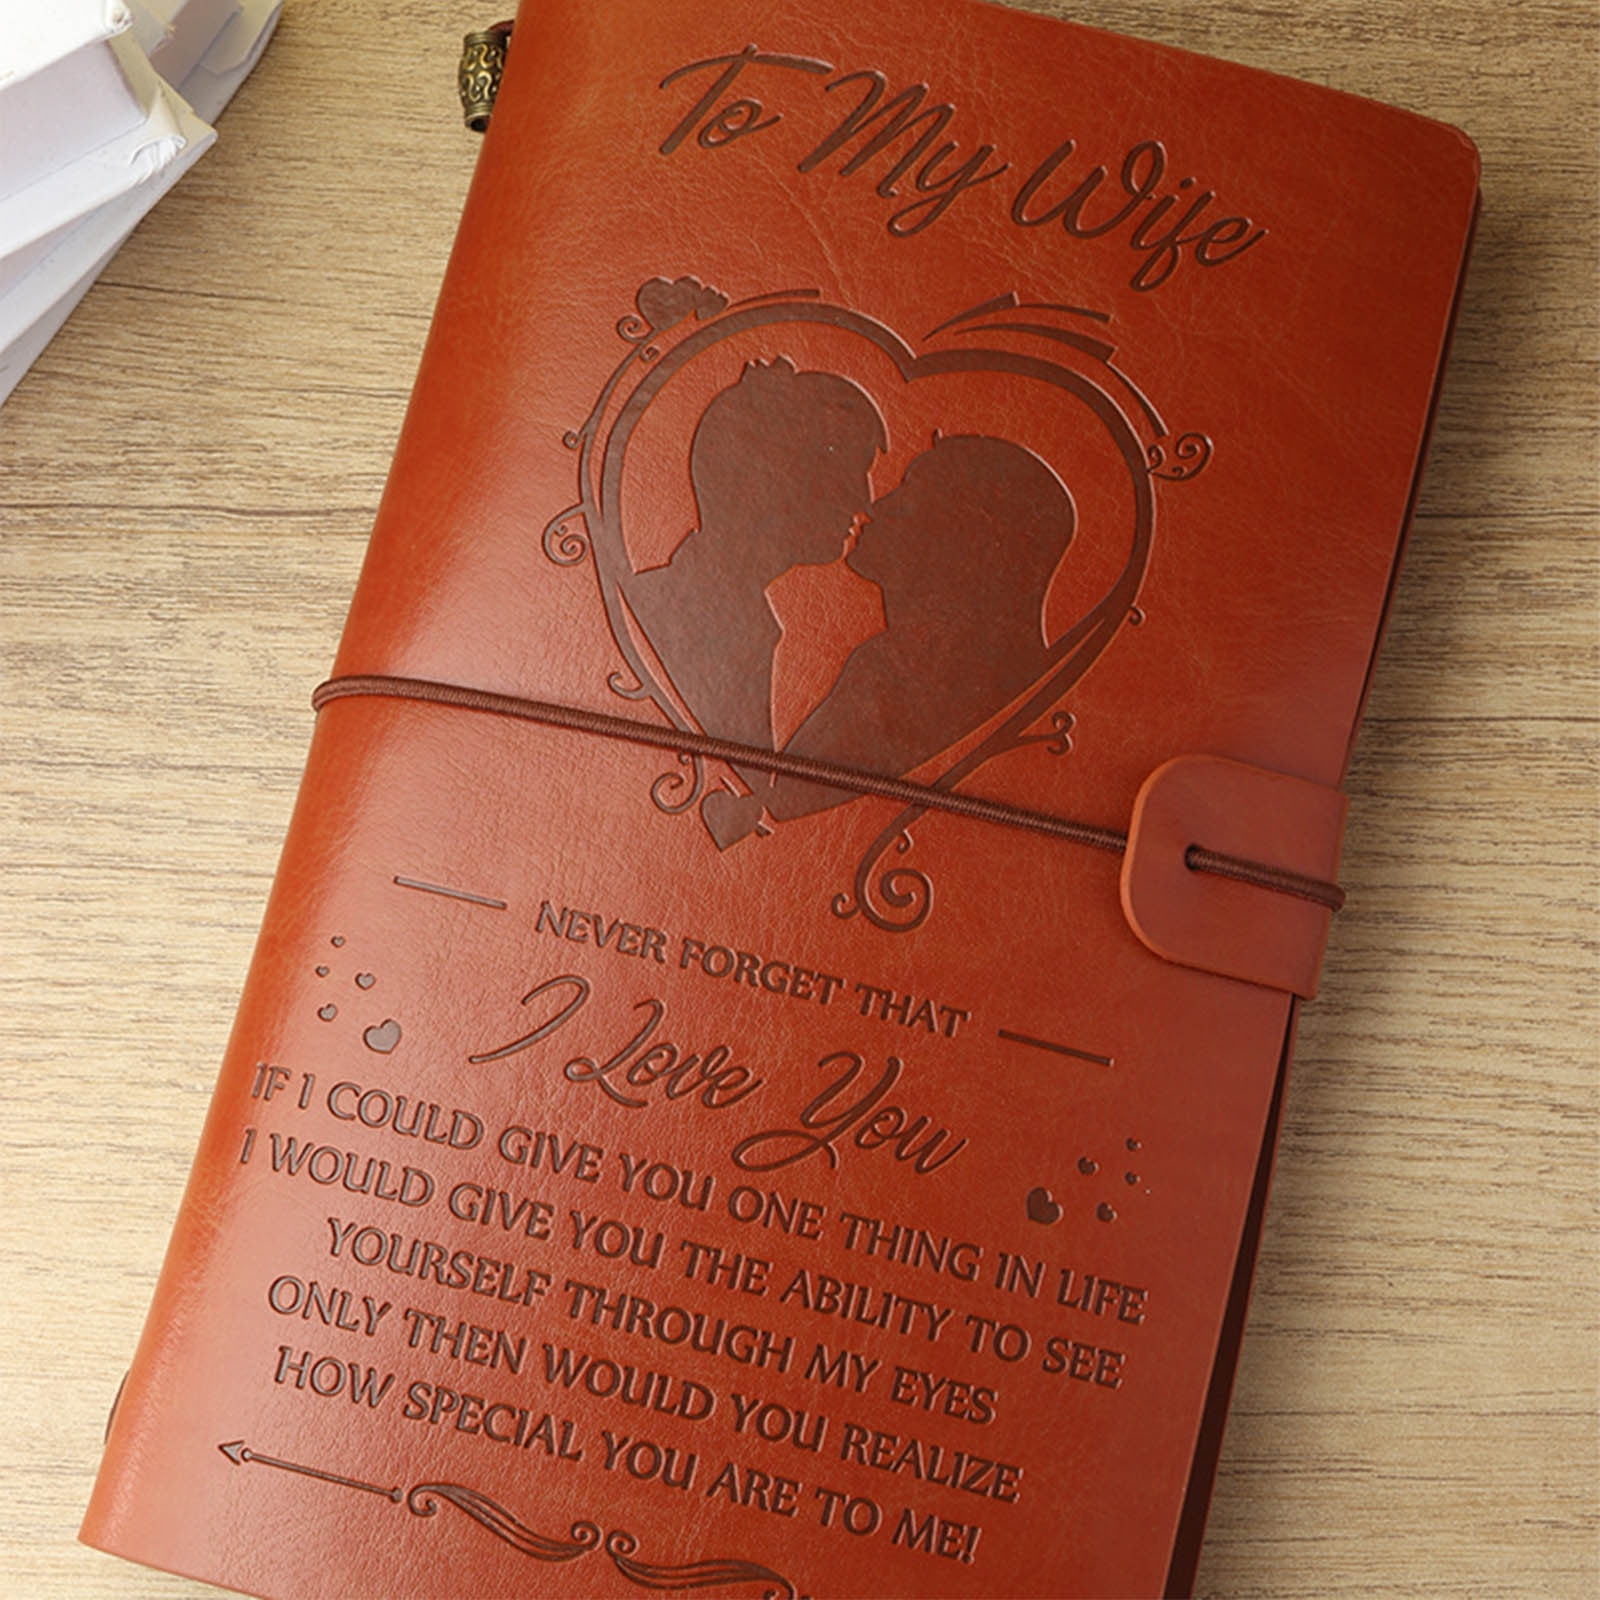 To My Wife
NEVER FORGET THAT
I Love You
IF I COULD GIVE YOU ONE THING IN LIFE
I WOULD GIVE YOU THE ABILITY TO SEE
YOURSELF THROUGH MY EYES
ONLY THEN WOULD YOU REALIZE
HOW SPECIAL YOU ARE TO ME!